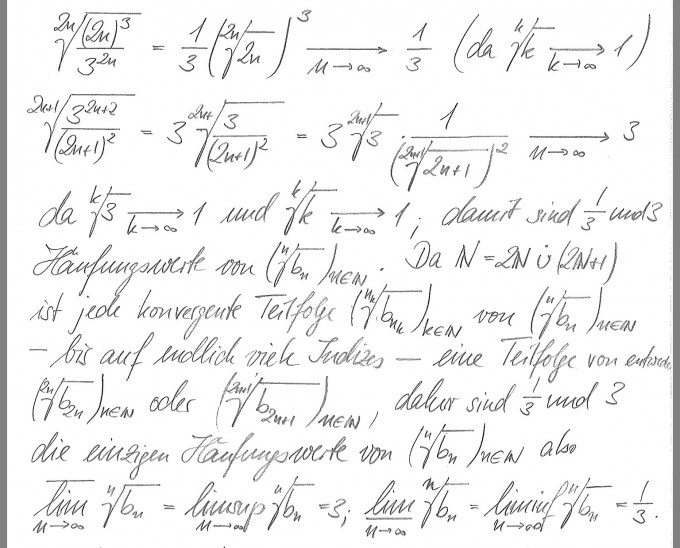 \sqrt[2n]{\frac{(2n)^3}{3^{2n}}} = \frac{1}{3} \left( \sqrt[2n]{2n} \right)^3 \xrightarrow[n \to \infty]{} \frac{1}{3} (da \sqrt[k]{k} \xrightarrow[k \to \infty]{} 1)
\sqrt[2n+1]{\frac{3^{2n+2}}{(2n+1)^2}} = 3 \sqrt[2n+1]{\frac{3}{(2n+1)^2}} = 3 \sqrt[2n+1]{3} \cdot \frac{1}{\left( \sqrt[2n+1]{2n+1} \right)^2} \xrightarrow[n \to \infty]{} 3
da \sqrt[k]{3} \xrightarrow[k \to \infty]{} 1 und \sqrt[k]{k} \xrightarrow[k \to \infty]{} 1; damit sind \frac{1}{3} und 3
Häufungswerte von (\sqrt[n]{b_n})_{n∈ℕ}. Da ℕ = 2ℕ ∪̇ (2ℕ+1)
ist jede konvergente Teilfolge (\sqrt[n_k]{b_{n_k}})_{k∈ℕ} von (\sqrt[n]{b_n})_{n∈ℕ}
– bis auf endlich viele Indizes – eine Teilfolge von entweder
(\sqrt[2n]{b_{2n}})_{n∈ℕ} oder (\sqrt[2n+1]{b_{2n+1}})_{n∈ℕ}, daher sind \frac{1}{3} und 3
die einzigen Häufungswerte von (\sqrt[n]{b_n})_{n∈ℕ} also
\overline{\lim}_{n→∞} \sqrt[n]{b_n} = limsup_{n→∞} \sqrt[n]{b_n} = 3; \underline{\lim}_{n→∞} \sqrt[n]{b_n} = liminf_{n→∞} \sqrt[n]{b_n} = \frac{1}{3}.